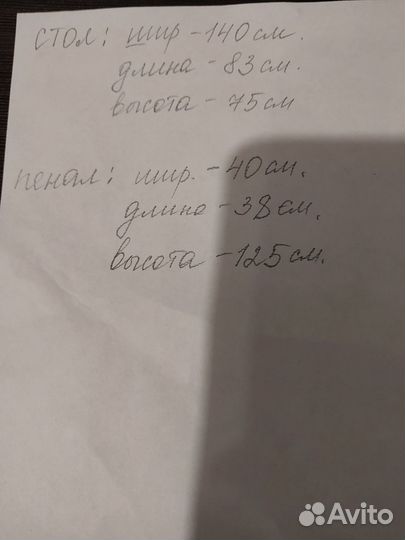 стол: шир - 140 см.
длина - 83 см.
высота - 75 см
пенал: шир. - 40 см.
длина - 38 см.
высота - 125 см.
Avito